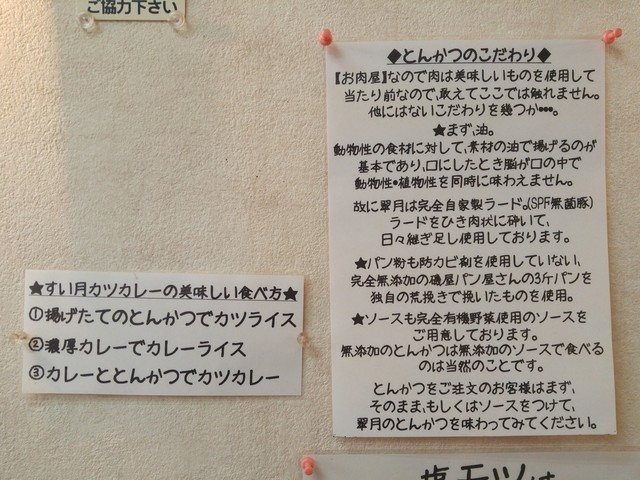 ご協力下さい
◆とんかつのこだわり◆
【お肉屋】なので肉は美味しいものを使用して
当たり前なので、敢えてここでは触れません。
他にはないこだわりを幾つか•••。
★まず、油。
動物性の食材に対して、素材の油で揚げるのが
基本であり、口にしたとき脳が口の中で
動物性•植物性を同時に味わえません。
故に翠月は完全自家製ラード。(SPF無菌豚)
ラードをひき肉状に砕いて、
日々継ぎ足し使用しております。
★パン粉も防カビ剤を使用していない、
完全無添加の磯屋パン屋さんの3斤パンを
独自の荒挽きで挽いたものを使用。
★ソースも完全有機野菜使用のソースを
ご用意しております。
無添加のとんかつは無添加のソースで食べる
のは当然のことです。
とんかつをご注文のお客様はまず、
そのまま、もしくはソースをつけて、
翠月のとんかつを味わってみてください。
★すい月カツカレーの美味しい食べ方★
①揚げたてのとんかつでカツライス
②濃厚カレーでカレーライス
③カレーととんかつでカツカレー